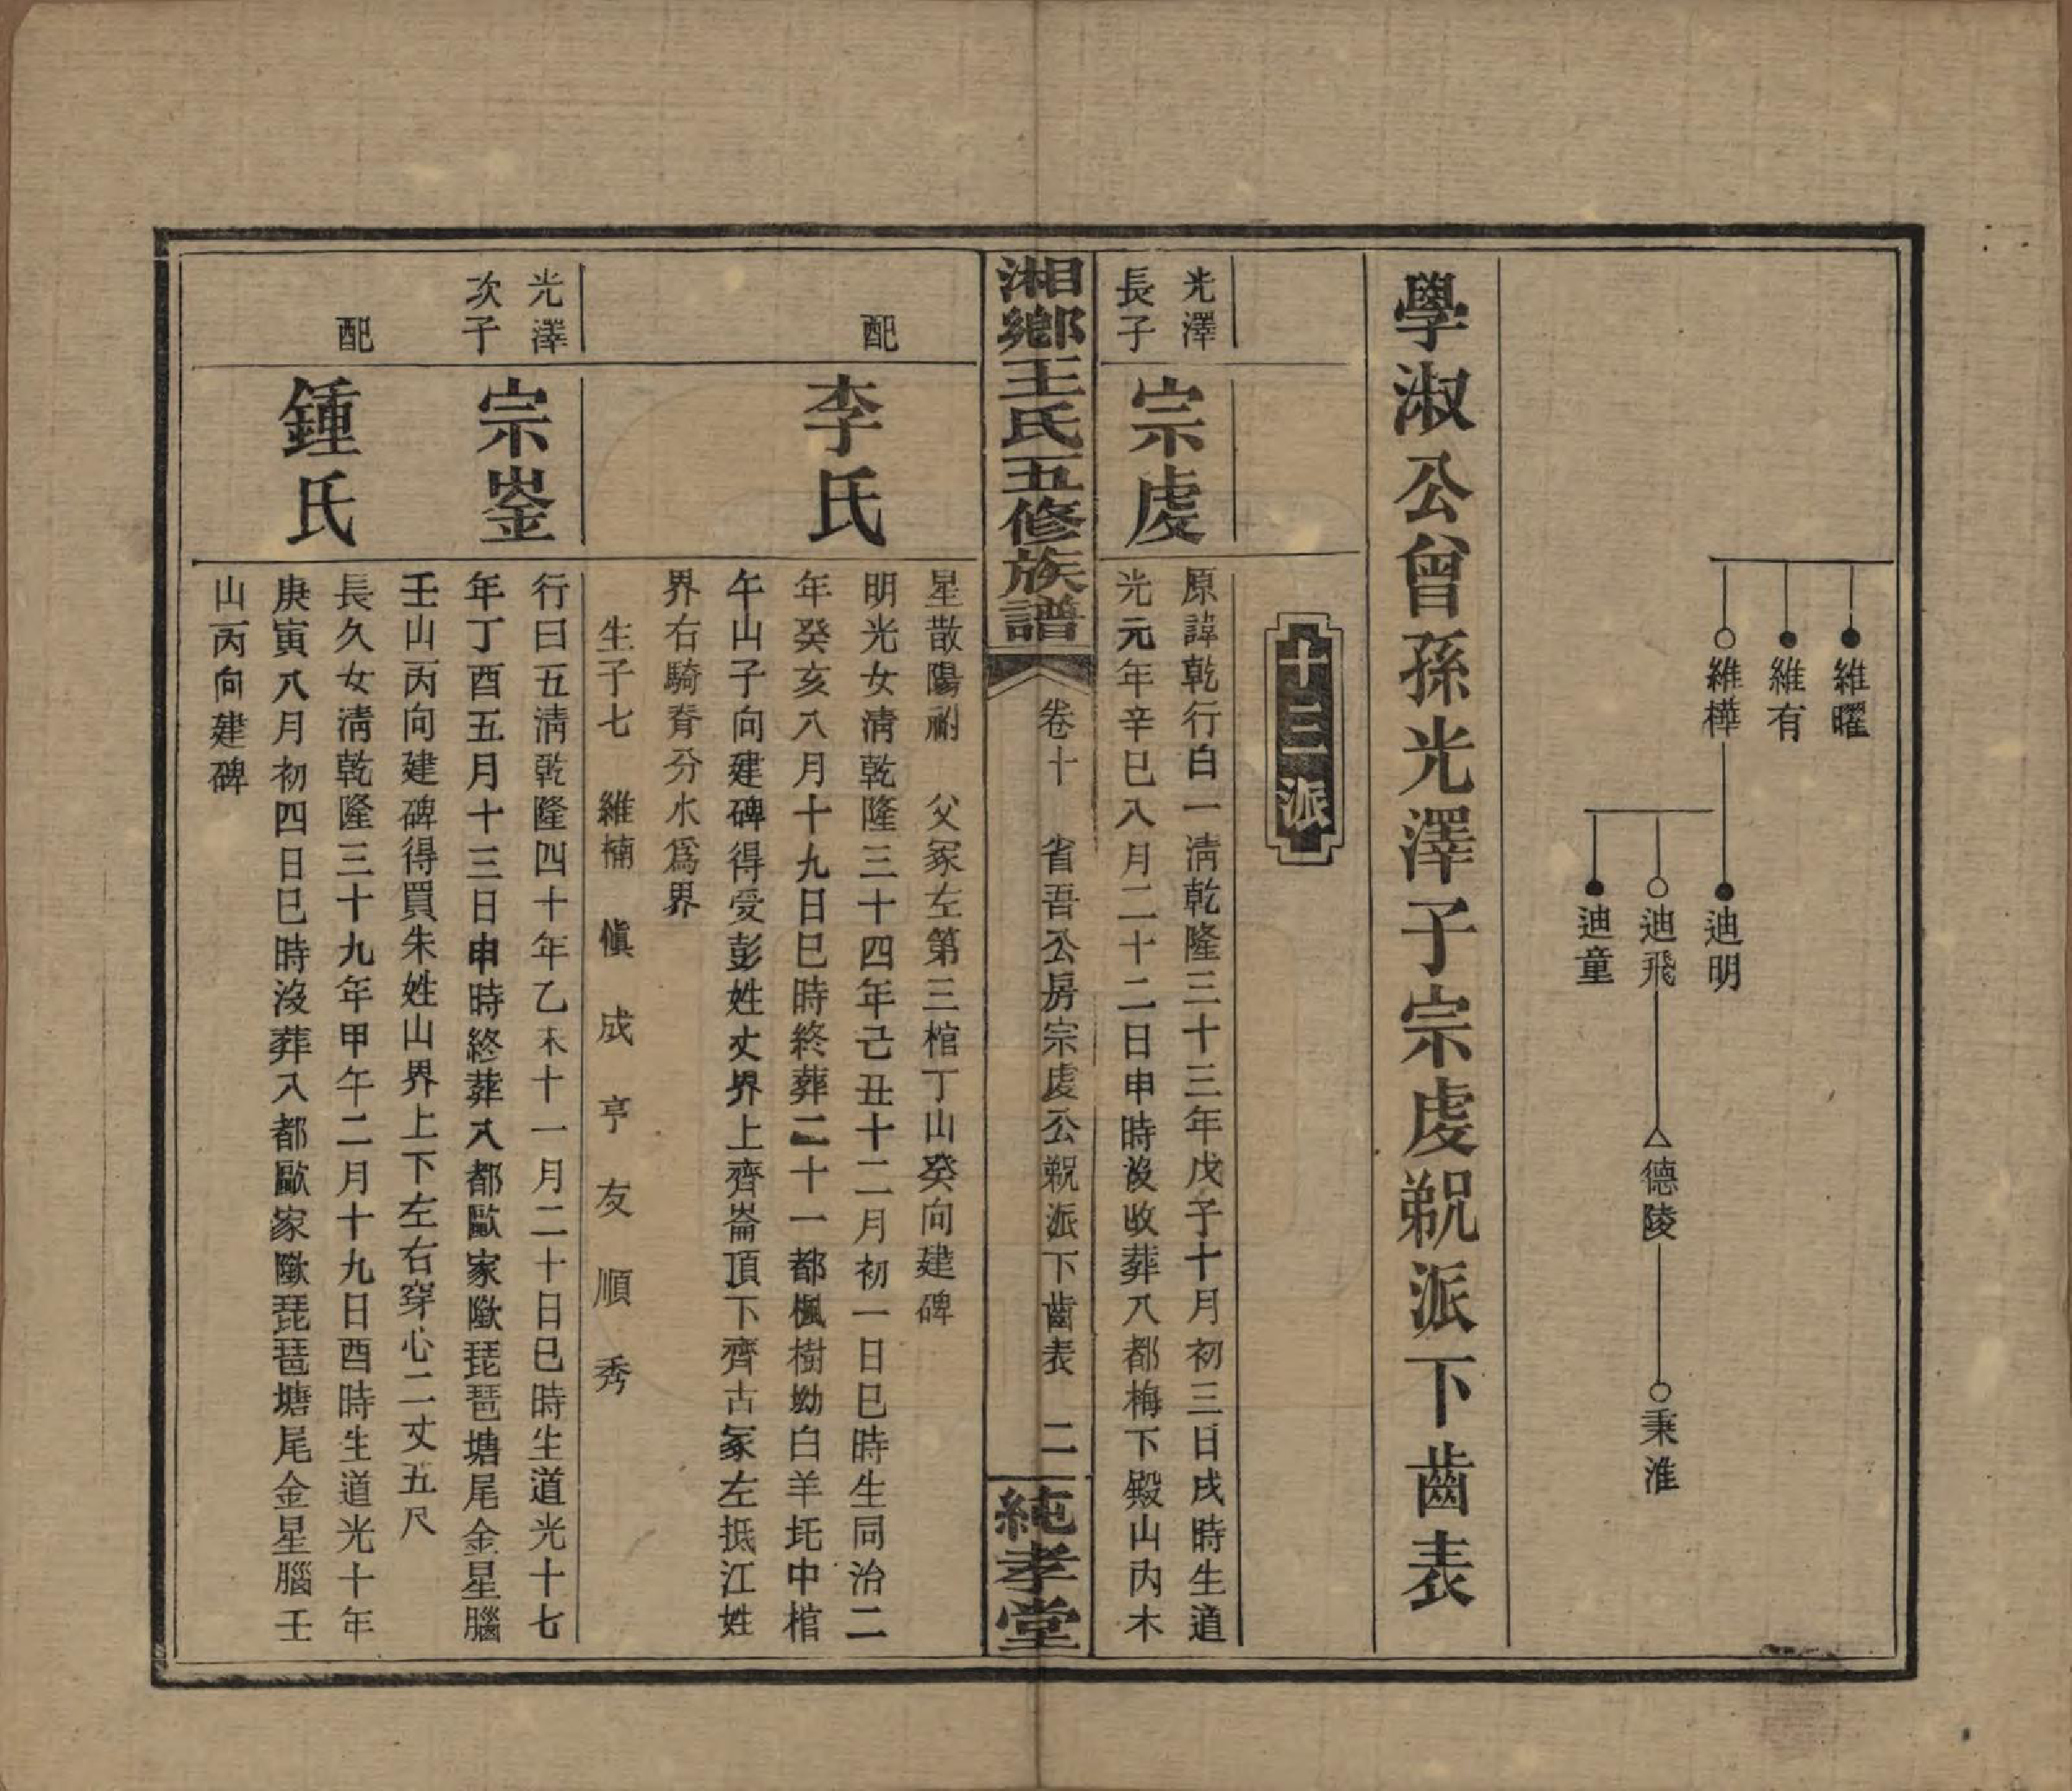 維曜
維有
維樺
迪明
迪飛
迪童
德陵
秉淮
學淑公曾孫光澤子宗虔覡派下齒表
十三派
光澤
長子
宗虔
原諱乾行白一淸乾隆三十三年戊子十月初三日戌時生道
光元年辛巳八月二十二日申時沒收葬八都梅下殿山內木
湘鄉王氏五修族譜
卷十
省吾公房宗虔公覡派下齒表
二
純孝堂
星散陽祔 父冢左第三棺丁山癸向建碑
配
李氏
明光女淸乾隆三十四年己丑十二月初一日巳時生同治二
年癸亥八月十九日巳時終葬二十一都楓樹坳白羊圫中棺
午山子向建碑得受彭姓丈界上齊崙頂下齊古冢左抵江姓
界右騎脊分水爲界
生子七 維楠 愼 成 亨 友 順 秀
光澤
次子
宗崟
行曰五淸乾隆四十年乙未十一月二十日巳時生道光十七
年丁酉五月十三日申時終葬八都歐家隞琵琶塘尾金星腦
壬山丙向建碑得買朱姓山界上下左右穿心二丈五尺
配
鍾氏
長久女淸乾隆三十九年甲午二月十九日酉時生道光十年
庚寅八月初四日巳時沒葬八都歐家隞琵琶塘尾金星腦壬
山丙向建碑